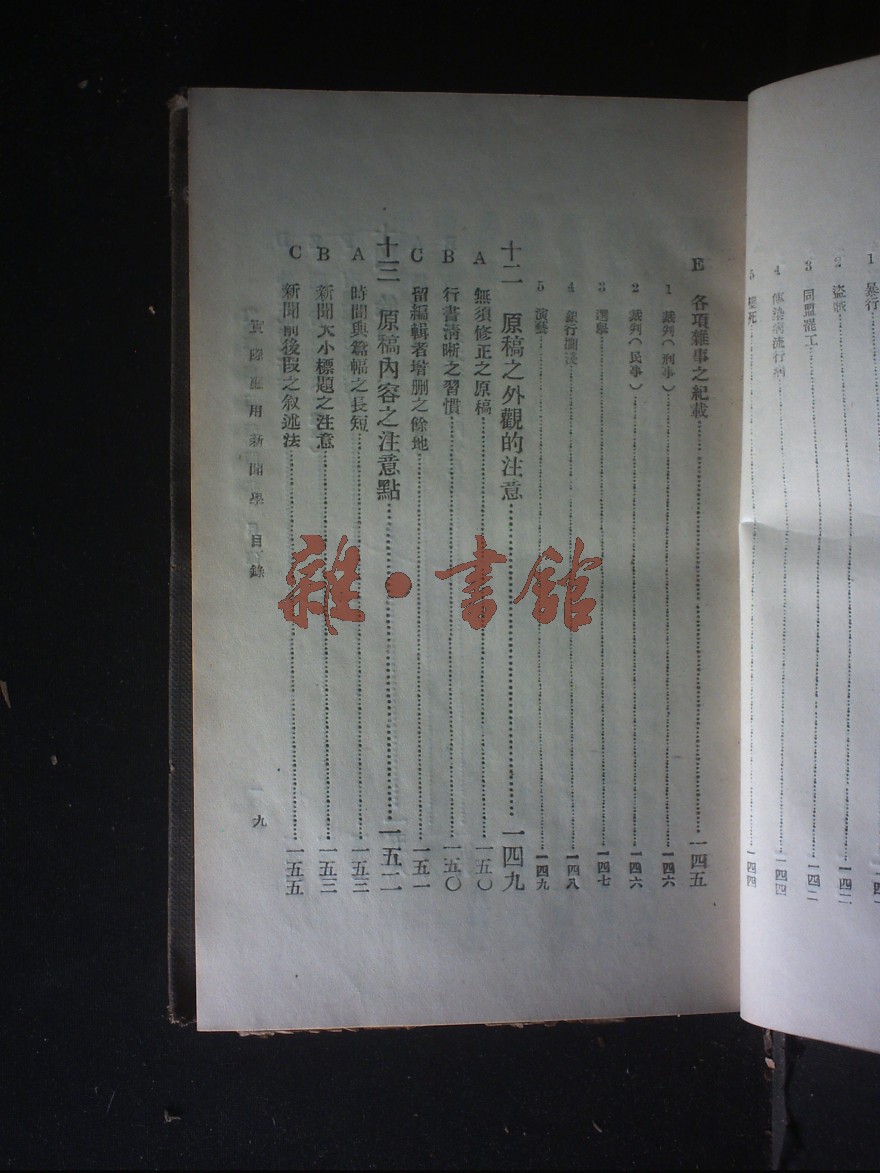 1 暴行
2 盜賊 一四二
3 同盟罷工 一四二
4 傳染病流行病 一四四
5 變死 一四四
E 各項雜事之紀載 一四五
1 裁判（刑事） 一四六
2 裁判（民事） 一四六
3 選舉 一四七
4 銀行 一四八
5 演藝 一四九
十二 原稿之外觀的注意 一四九
A 無須修正之原稿 一五〇
B 行書清晰之習慣 一五〇
C 留編輯者增删之餘地 一五一
十三 原稿內容之注意點 一五二
A 時間與篇幅之長短 一五三
B 新聞大小標題之注意 一五三
C 新聞前後段之叙述法 一五五
實際應用新聞學 目錄
九
雜·書館